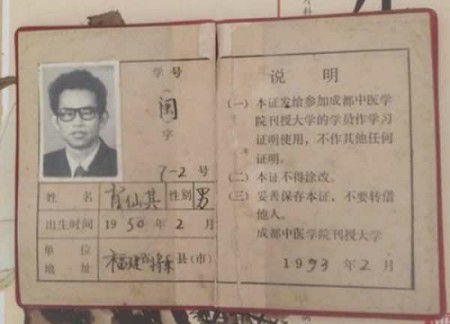 学号
闽
字
7-2号
姓名 肖仙其 性别 男
出生时间 1950年2月
单位地址 福建 县(市)
说明
(一)本证发给参加成都中医学
院刊授大学的学员作学习
证明使用，不作其他任何
证明。
(二)本证不得涂改。
(三)妥善保存本证，不要转借
他人。
成都中医学院刊授大学
1993年2月